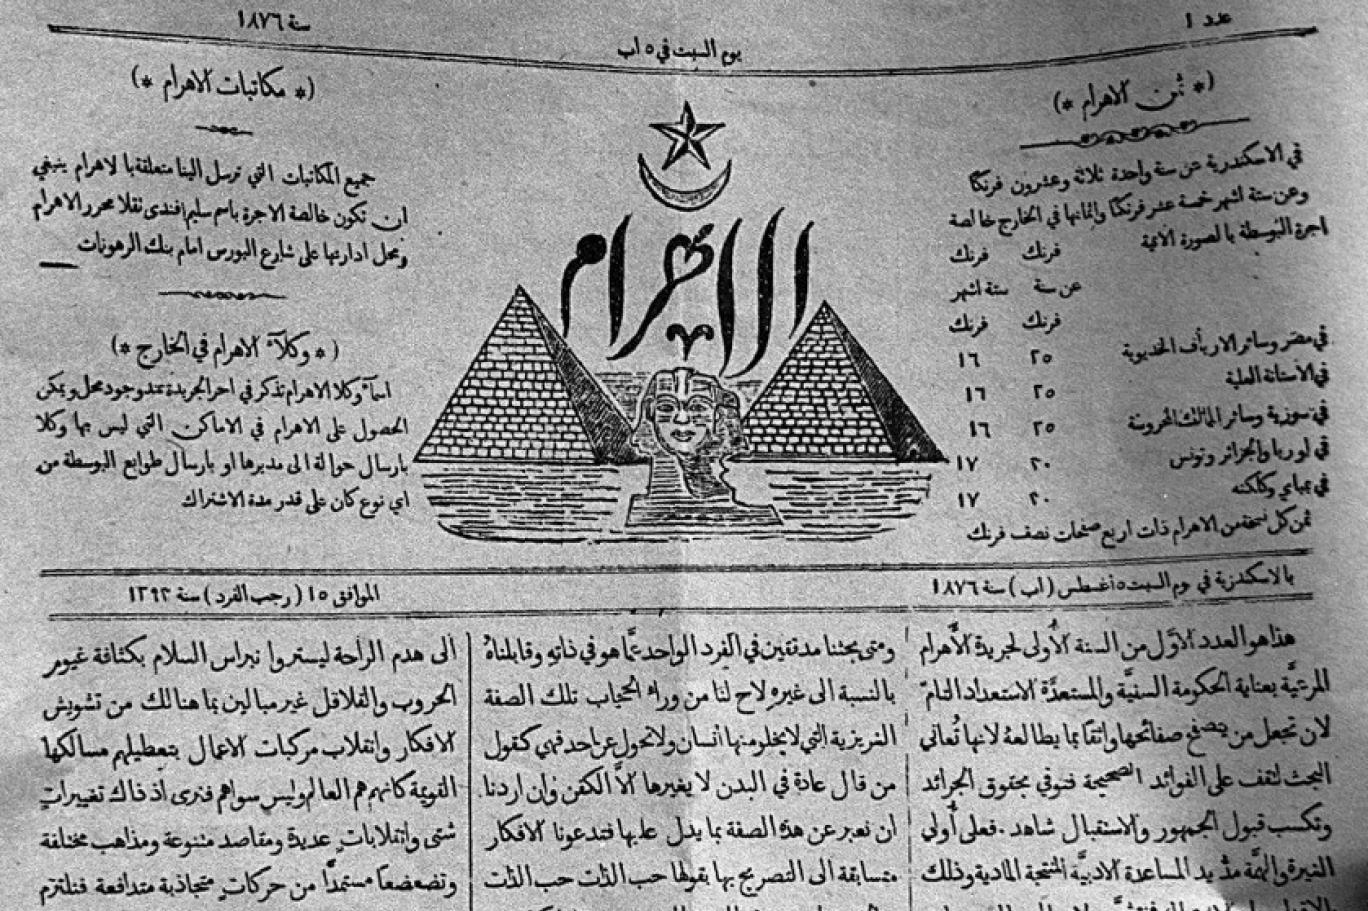 عدد ١
يوم السبت في ٥ اب
سنة ١٨٧٦
(* ثمن الاهرام *)
في الاسكندرية عن سنة واحدة ثلاثة وعشرون فرنكًا
وعن ستة اشهر خمسة عشر فرنكًا واثمانها في الخارج خالصة
اجرة البوسطة بالصورة الاتية
فرنك فرنك
عن سنة ستة اشهر
فرنك فرنك
في مصر وسائر الارياف الخديوية ٢٥ ١٦
في الاستانة العلية ٢٥ ١٦
في سورية وسائر الممالك المحروسة ٢٥ ١٦
في اوربا والجزائر وتونس ٢٠ ١٧
في بمباي وكلكته ٢٠ ١٧
ثمن كل نسخة من الاهرام ذات اربع صفحات نصف فرنك
الاهرام
(* مكاتبات الاهرام *)
جميع المكاتبات التي ترسل الينا متعلقة بالاهرام ينبغي
ان تكون خالصة الاجرة باسم سليم افندي تقلا محرر الاهرام
ومحل ادارتها على شارع البورس امام بنك الرهونات
(* وكلآء الاهرام في الخارج *)
اسمآء وكلا الاهرام تذكر في اخر الجريدة عند وجود محل ويمكن
الحصول على الاهرام في الاماكن التي ليس بها وكلا
بارسال حوالة الى مديرها او بارسال طوابع البوسطة من
اي نوع كان على قدر مدة الاشتراك
بالاسكندرية في يوم السبت ٥ اغسطس (اب) سنة ١٨٧٦
الموافق ١٥ (رجب الفرد) سنة ١٢٩٣
هذا هو العدد الاوَّل من السنة الأولى لجريدة الأهرام
المرعيَّة بعناية الحكومة السنيَّة والمستعدَّة الاستعداد التامّ
لان تجعل من يتصفح صفائحها واثقًا بما يطالعهُ لانها تُعاني
البحث لتقف على الفوائد الصحيحة فتوفي بحقوق الجرائد
وتكسب قبول الجمهور والاستقبال شاهد. فعلى أُولي
الغيرة والهمَّة مدّ يد المساعدة الادبيَّة المنتجة المادية وذلك
ومتى بحثنا مدققين في الفرد الواحد عمَّا هو في ذاتهِ وقابلناهُ
بالنسبة الى غيره لاح لنا من وراء الحجاب تلك الصفة
الغريزية التي لا يخلو منها انسان ولا تحول عن احد فهي كقول
من قال عادة في البدن لا يغيرها الاَّ الكفن وان اردنا
ان نعبر عن هذه الصفة بما يدل عليها فتدعونا الافكار
متسابقة الى التصريح بها بقولها حب الذات حب الذات
الى هدم الراحة ليستروا نبراس السلام بكثافة غيوم
الحروب والقلاقل غير مبالين بما هنالك من تشويش
الافكار وانقلاب مركبات الاعمال بتعطيلهم مسالكها
القويمة كانهم هم العالم وليس سواهم فنرى اذ ذاك تغييرات
شتى وانقلابات عديدة ومقاصد متنوعة ومذاهب مختلفة
وتضعضعًا مستمدًّا من حركات متجاذبة متدافعة فنلتزم